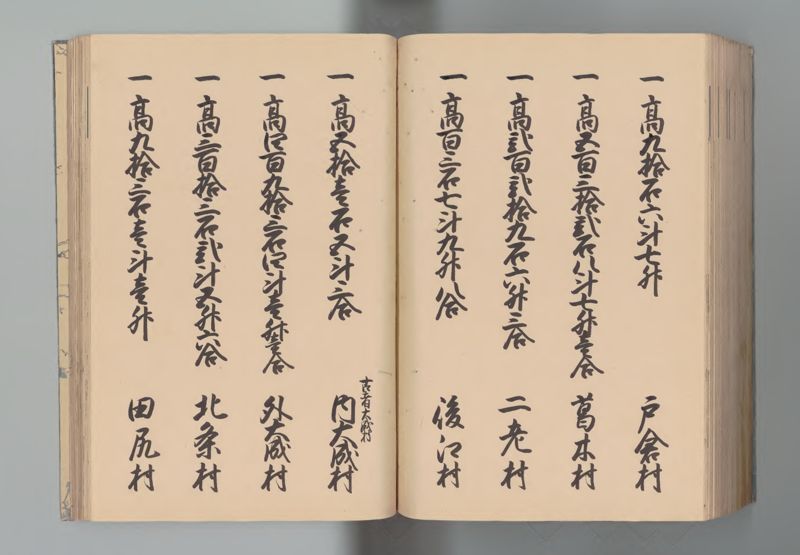 一 高九拾石六斗七升 戸倉村
一 高五百三拾弐石八斗七升壱合 葛木村
一 高弐百弐拾九石六升三合 二老村
一 高百三石七斗九升八合 後江村
古者大成村
一 高五拾壱石五斗三合 内大成村
一 高四百九拾三石四斗壱升壱合 外大成村
一 高三百拾三石弐斗五升六合 北条村
一 高九拾三石壱斗壱升 田尻村